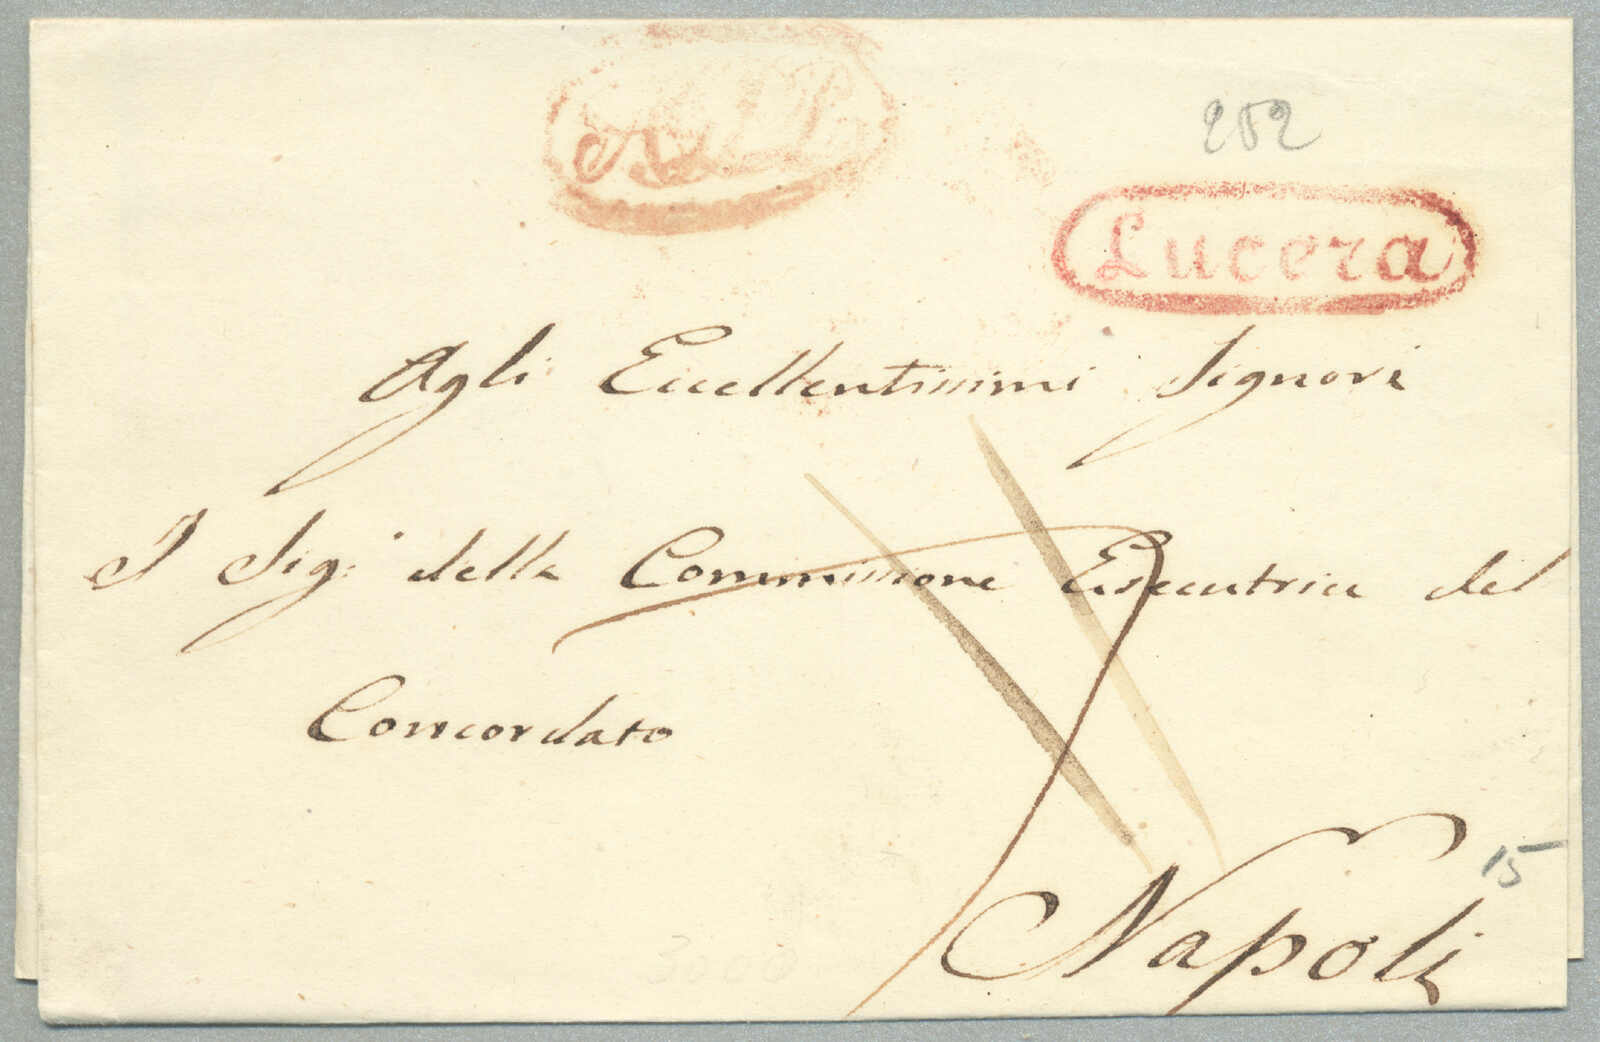 252
Lucera
Agli Eccellentissimi Signori
I Sig.i della Commissione Esecutrice del
Concordato
Napoli
15
3000